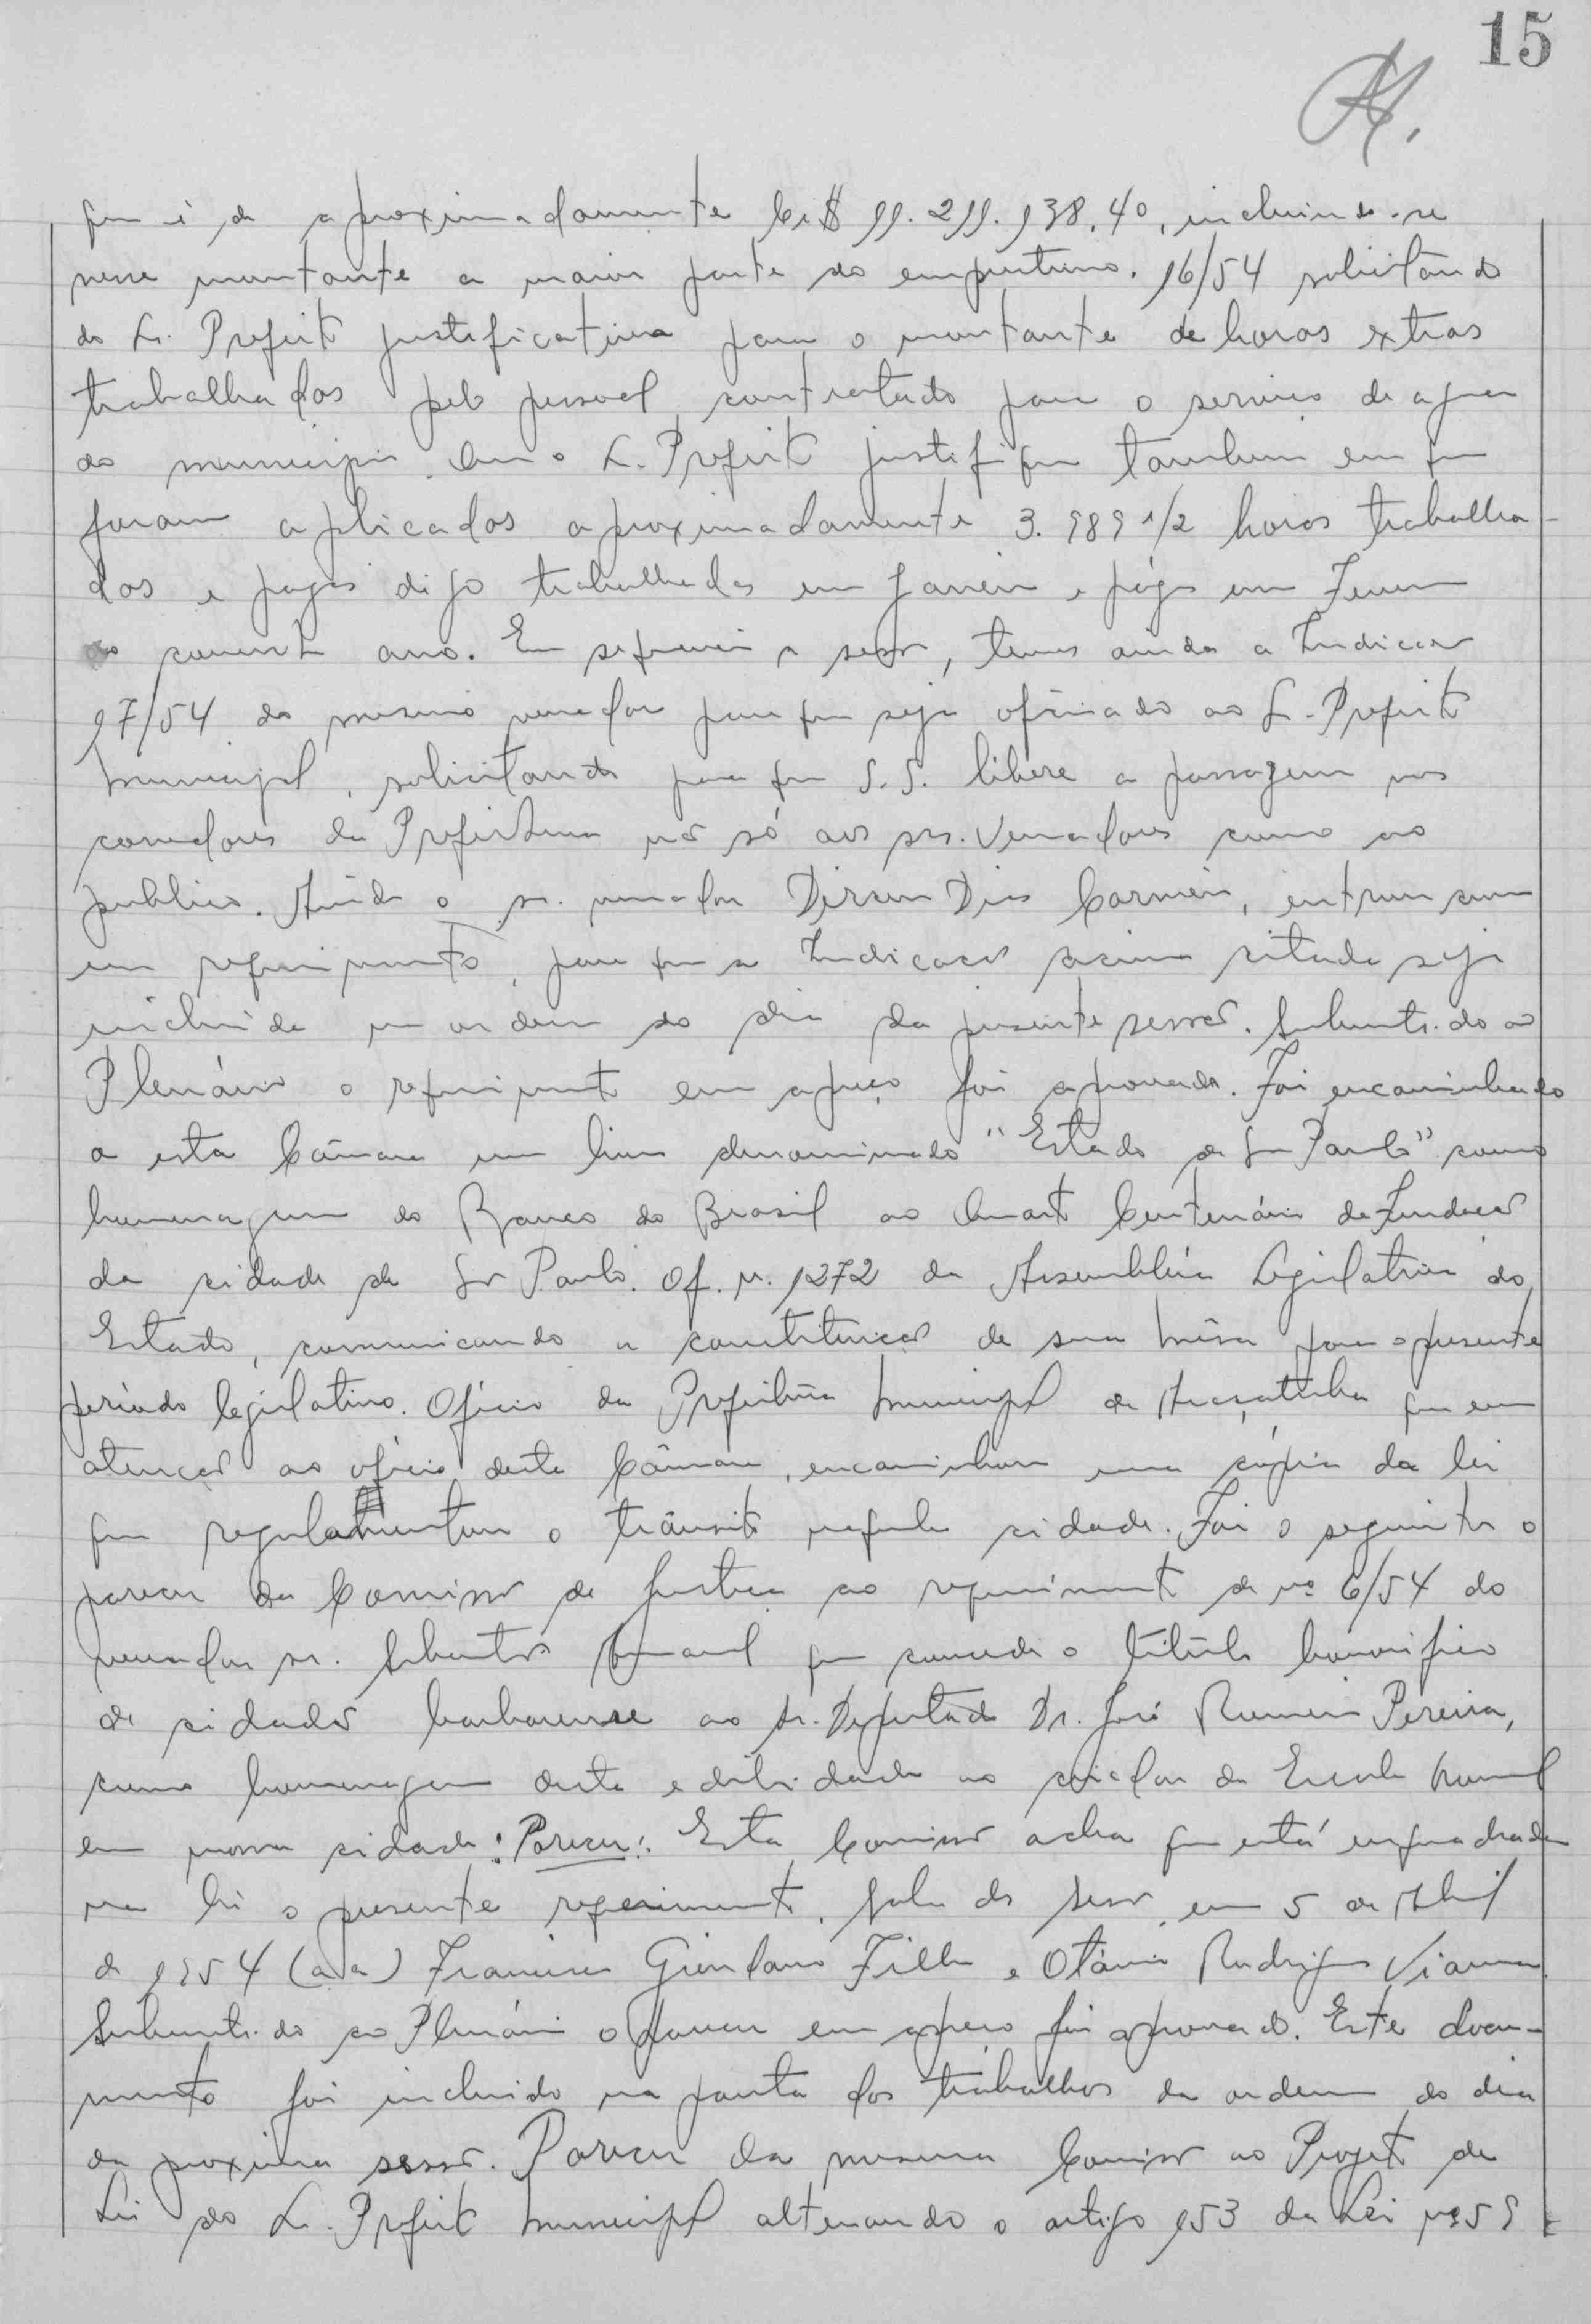 15
que é de aproximadamente Cr$ 11.211.138,40, incluindo-se
nesse montante a maior parte do emprestimo. 16/54 solicitando
do Sr. Prefeito justificativa para o montante de horas extras
trabalhadas pelo pessoal contratado para o serviço de agua
do municipio. Que o Sr. Prefeito justifique tambem em que
foram aplicadas aproximadamente 3.989 1/2 horas trabalha-
das e pagas digo trabalhadas em Janeiro e págas em Fevereiro
do corrente ano. Em sequencia a sessão, temos ainda a Indicação
17/54 do mesmo vereador para que seja oficiado ao Sr. Prefeito
Municipal, solicitando para que S.S. libere a passagem nos
corredores da Prefeitura não só aos srs. Vereadores como ao
publico. Ainda o sr. vereador Dirceu Dias Carneiro, entrou com
um requerimento, para que a Indicação acima citada seja
incluida na ordem do dia da presente sessão. Submetido ao
Plenário o requerimento em apreço foi aprovado. Foi encaminhado
a esta Câmara um livro denominado "Estado de São Paulo" como
homenagem do Banco do Brasil ao Quarto Centenário da Fundação
da cidade de São Paulo. Of. n. 1272 da Assembléia Legislativa do
Estado, comunicando a constituição de sua Mêsa para o presente
periodo legislativo. Oficio da Prefeitura Municipal de Araçatuba que em
atenção ao oficio desta Câmara, encaminhou uma cópia da lei
que regulamentou o trânsito naquela cidade. Foi o seguinte o
parecer da Comissão de Justiça ao requerimento de nº 6/54 do
vereador sr. que concede o titulo honorifico
de cidadão barbarense ao Sr. Deputado Dr. José Romeiro Pereira,
como homenagem desta edilidade ao criador da Escola Normal
em nossa cidade: Parecer: Esta Comissão acha que está enquadrado
na lei o presente requerimento. Sala das Sessões, em 5 de Abril
de 1954 (a.a) Francisco Giordano Filho e Otávio Rodrigues Vianna.
Submetido ao Plenário o parecer em apreço foi aprovado. Este docu-
mento foi incluido na pauta dos trabalhos da ordem do dia
da proxima sessão. Parecer da mesma Comissão ao Projeto de
Lei do Sr. Prefeito Municipal alterando o artigo 153 da Lei nº 59